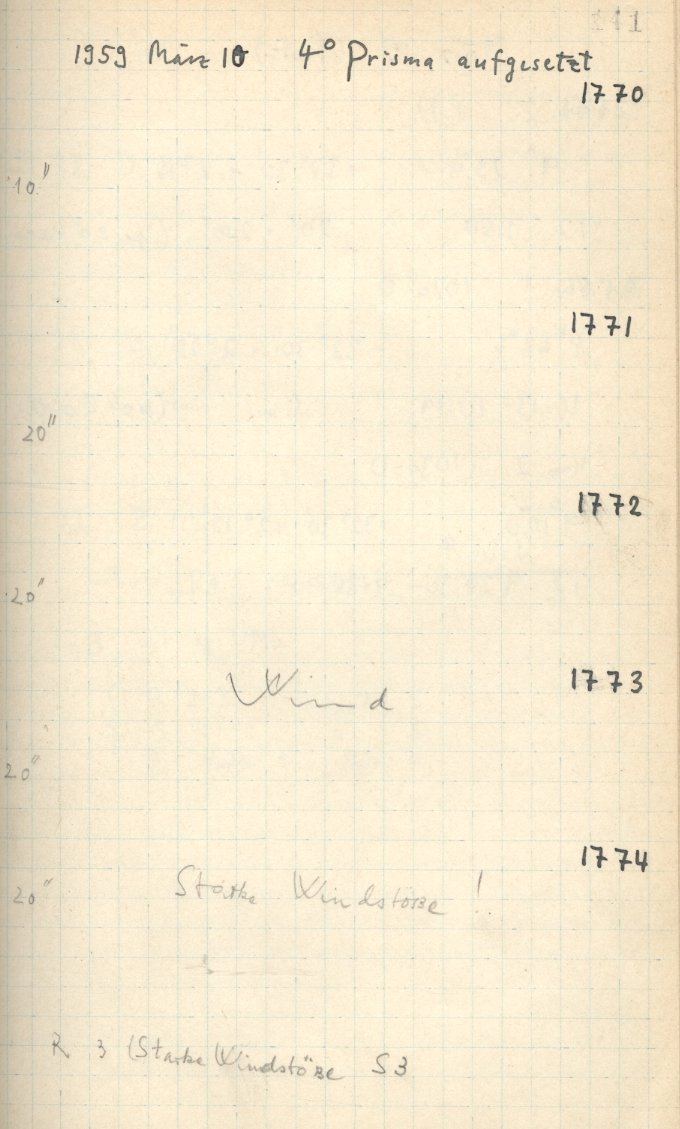 141
1959 März 10 4° Prisma aufgesetzt
1770
10"
1771
20"
1772
20"
Wind 1773
20"
1774
20" Starke Windstösse!
R 3 (Starke Windstöße S3